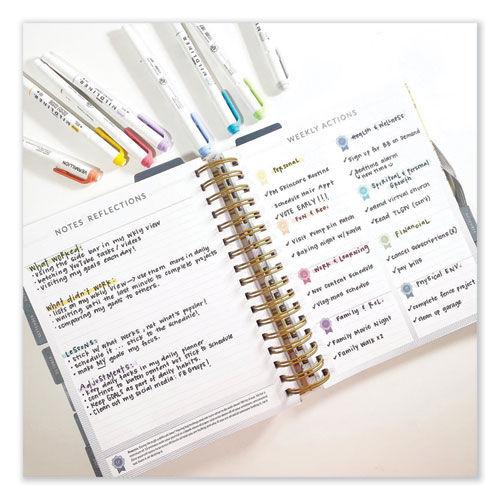 MILDLINER
MILDLINER
VERMILION
NOTES REFLECTIONS
What worked:
• using the side bar in my wkly view
• batching YouTube tasks / videos
• visiting my goals each day!
What didn't work:
• lists on my wkly view → use them more in daily
• waiting until the last minute to complete projects
• comparing my goals to others.
Lessons:
• stick w/ what works, not what's popular!
• stick to the schedule!
• make MY goals my focus.
Adjustments:
• keep daily tasks in my daily planner
• continue to batch content but stick to schedule
• keep GOALS as part of daily habits.
• clean out my social media: FB Groups!
WEEKLY ACTIONS
Personal
✓ PM Skincare Routine
✓ Schedule Hair Appt
✓ VOTE EARLY!!!
Fun & Rec.
✓ Visit Pumpkin Patch
✓ Baking night w/ Kayla
Work & Learning
✓ Nov content schedule
✓ Vlogmas schedule
Family & Rel.
✓ Family Movie Night
✓ Family Walk x2
Health & Wellness
✓ Sign up for BB on Demand
✓ Bedtime alarm
Spiritual & Personal
Growth
✓ attend virtual church
✓ Read TLGDN (cont.)
Financial
✓ Cancel Subscription(s)
✓ pay bills
Physical Env.
✓ complete fence project
✓ clean up garage